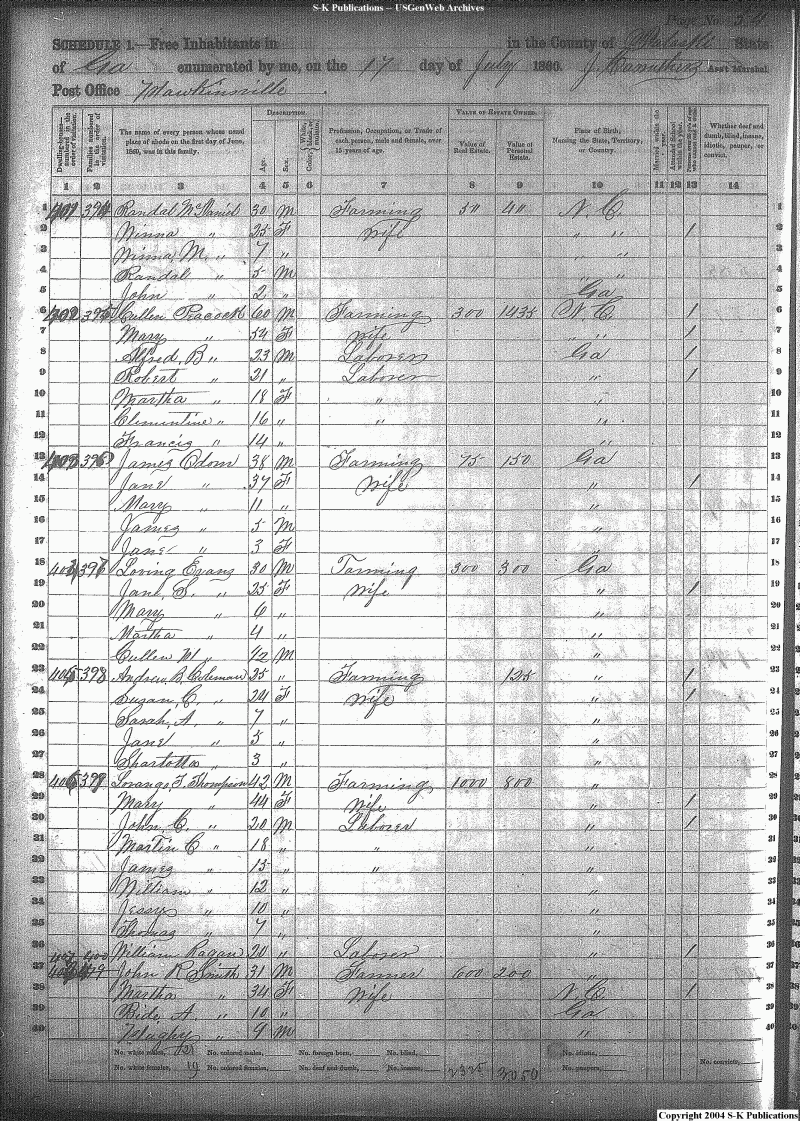 S-K Publications -- USGenWeb Archives
Page No. 54
SCHEDULE 1.—Free Inhabitants in in the County of Pulaski State
of Ga enumerated by me, on the 17 day of July 1860. J. Carruthers Ass't Marshal
Post Office Hawkinsville
Dwelling-houses numbered in the order of visitation. Families numbered in the order of visitation. The name of every person whose usual place of abode on the first day of June, 1860, was in this family. Description. Age. Sex. Color, White, black, or mulatto. Profession, Occupation, or Trade of each person, male and female, over 15 years of age. Value of Estate Owned. Value of Real Estate. Value of Personal Estate. Place of Birth, Naming the State, Territory, or Country. Married within the year. Attended School within the year. Whether deaf and dumb, blind, insane, idiotic, pauper, or convict.
1 2 3 4 5 6 7 8 9 10 11 12 13 14
1 394 Randal McDaniel 30 M Farming 50 40 N.C. 1
2 Winna " 25 F Wife " " 1 2
3 Winna M. " 7 " " " 3
4 Randal " 5 M " " 4
5 John " 2 " Ga 5
6 402 395 Cullen Peacock 60 M Farming 300 1435 N.C. 1 6
7 Mary " 54 F Wife " " 1 7
8 Alfred B " 23 M Laborer Ga 1 8
9 Robert " 21 " Laborer " 1 9
10 Martha " 18 F " " 10
11 Clementine " 16 " " " 11
12 Francis " 14 " " 12
13 403 396 James Odom 38 M Farming 75 150 Ga 13
14 Jane " 37 F Wife " 1 14
15 Mary " 11 " " 15
16 James " 5 M " 16
17 Jane " 3 F " 17
18 404 397 Loving Evans 30 M Farming 300 300 Ga 18
19 Jane S. " 25 F Wife " 1 19
20 Mary " 6 " " 20
21 Martha " 4 " " 21
22 Cullen W " 1/2 M " 22
23 405 398 Andrew B. Coleman 25 " Farming 125 " 1 23
24 Suzan C. " 24 F Wife " 1 24
25 Sarah A. " 7 " " 25
26 Jane " 5 " " 26
27 Sharlotta " 3 " " 27
28 406 399 Thompson 42 M Farming 1000 800 " 28
29 Mary " 44 F Wife " 1 29
30 John C. " 20 M Laborer " 1 30
31 Martin C " 18 " " " 31
32 James " 15 " " " 32
33 William " 12 " " 33
34 Jessy " 10 " " 34
35 Thomas " 7 " " 35
36 407 400 William Ragan 20 " Laborer " 1 36
37 John R Smith 31 M Farmer 600 200 " 37
38 Martha " 34 F Wife N.C. 1 38
39 A. " 10 " Ga 39
40 " 9 M " 40
No. white males, 21 No. colored males, No. foreign born, No. blind, No. idiotic, No. convicts,
No. white females, 19 No. colored females, No. deaf and dumb, No. insane, 2325 3050 No. paupers,
Copyright 2004 S-K Publications